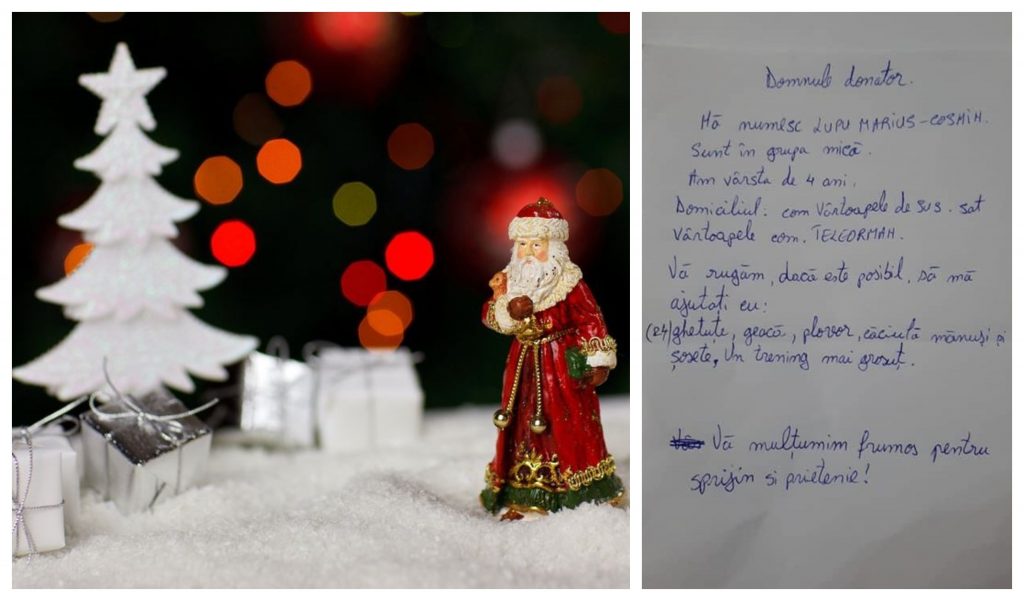 Domnule donator.
Mă numesc LUPU MARIUS-COSMIN.
Sunt în grupa mică.
Am vârsta de 4 ani.
Domiciliul: com Vârtoapele de SUS. sat
Vârtoapele com. TELEORMAN.
Vă rugăm, dacă este posibil, să mă
ajutați cu:
(24) ghetuțe, geacă, plovor, căciuță mănuși și
șosete, Un trening mai grosuț.
Vă mulțumim frumos pentru
sprijin si prietenie!